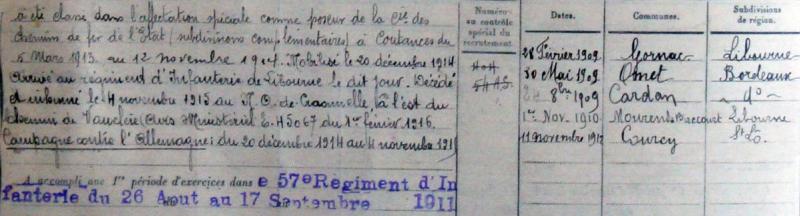 a été classé dans l'affectation spéciale comme poseur de la Cie des
Chemins de fer de l'Etat (subdivisions complémentaires) à Coutances du
5 Mars 1913 au 12 novembre 1914. Mobilisé le 20 décembre 1914
arrivé au régiment d'Infanterie de Libourne le dit jour. Décédé
et inhumé le 4 novembre 1915 au N. O. de Craonnelle, à l'est du
chemin de Vauclerc (Avis Ministériel E. 45067 du 1er février 1916.
Campagne contre l'Allemagne: du 20 décembre 1914 au 4 novembre 191
A accompli une 1re période d'exercices dans e 57e Regiment d'In
fanterie du 26 Aout au 17 Septembre 1911
Numéros
au contrôle
spécial du
recrutement.
Dates.
Communes.
Subdivisions
de région.
28 Février 1909 Gornac Libourne
30 Mai 1909 Omet Bordeaux
8bre 1909 Cardan do
1er Nov. 1910 Mourens Libourne
11 novembre 191 Courcy St Lô